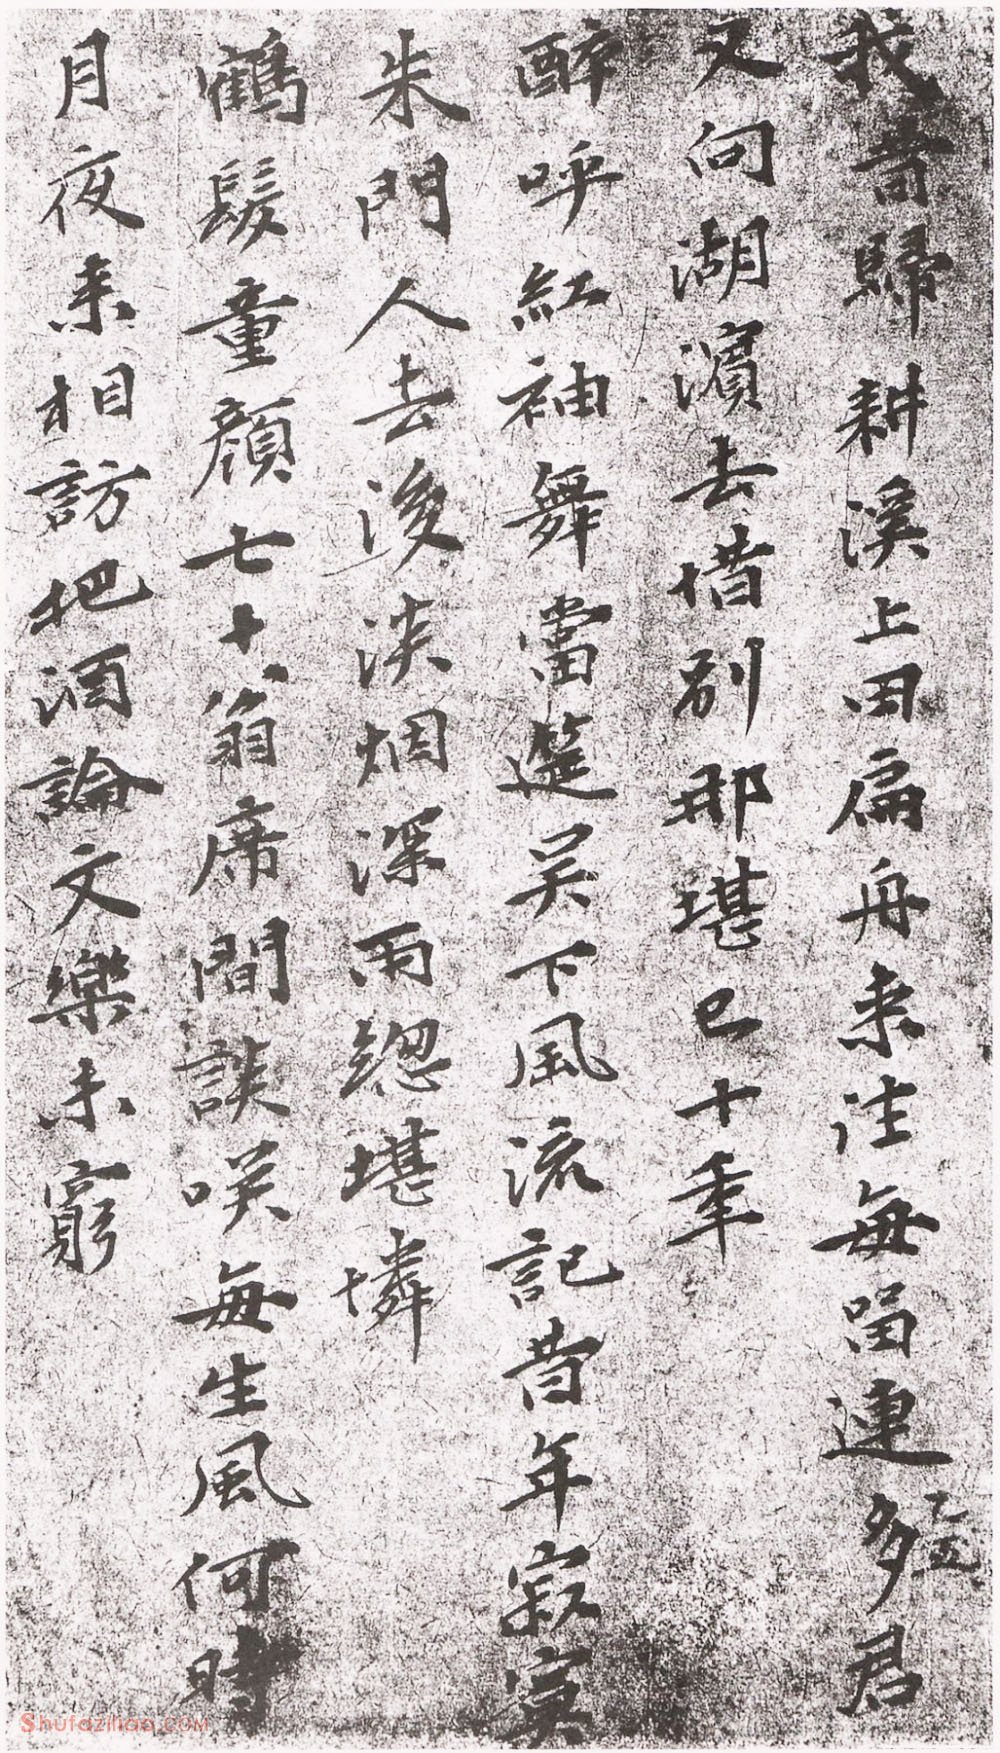 我昔歸耕溪上田扁舟来往每留連知君
又向湖濱去惜别那堪已十年
醉呼紅袖舞當筵吴下風流記昔年寂寞
朱門人去後淡烟深雨緫堪憐
鶴髮童顔七十翁席間談咲每生風何時
月夜来相訪把酒論文樂未窮
Shufaziliao.COM